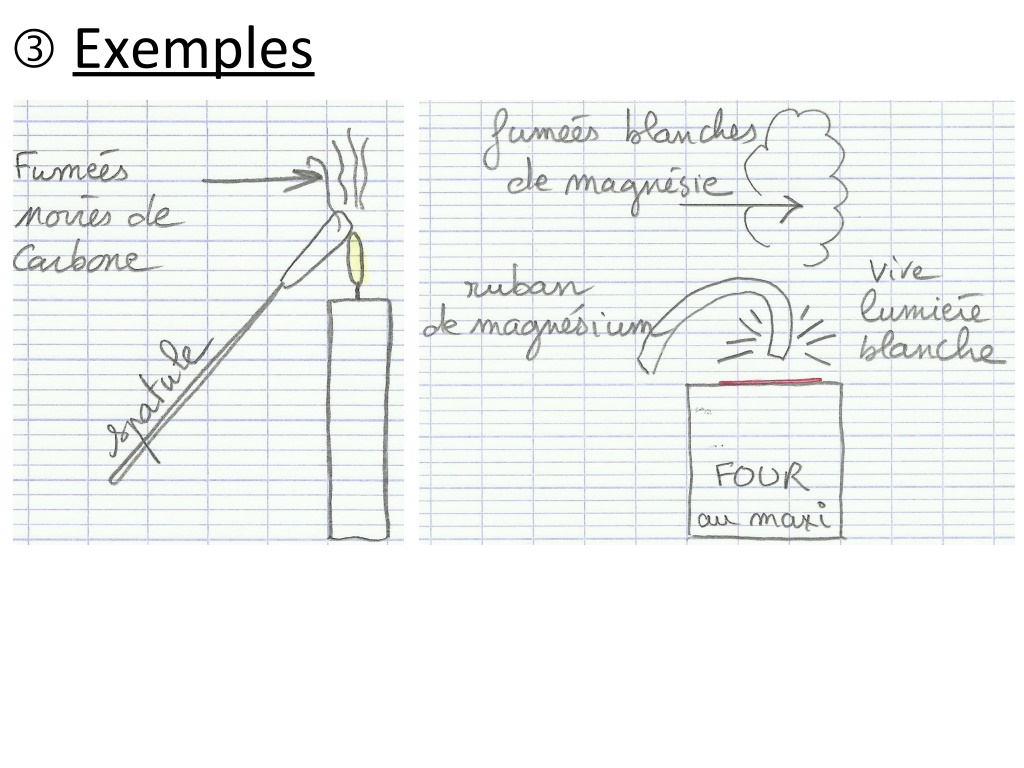 ③ Exemples
Fumées
noires de
Carbone
spatule
fumées blanches
de magnésie
ruban
de magnésium
vive
lumière
blanche
FOUR
au maxi